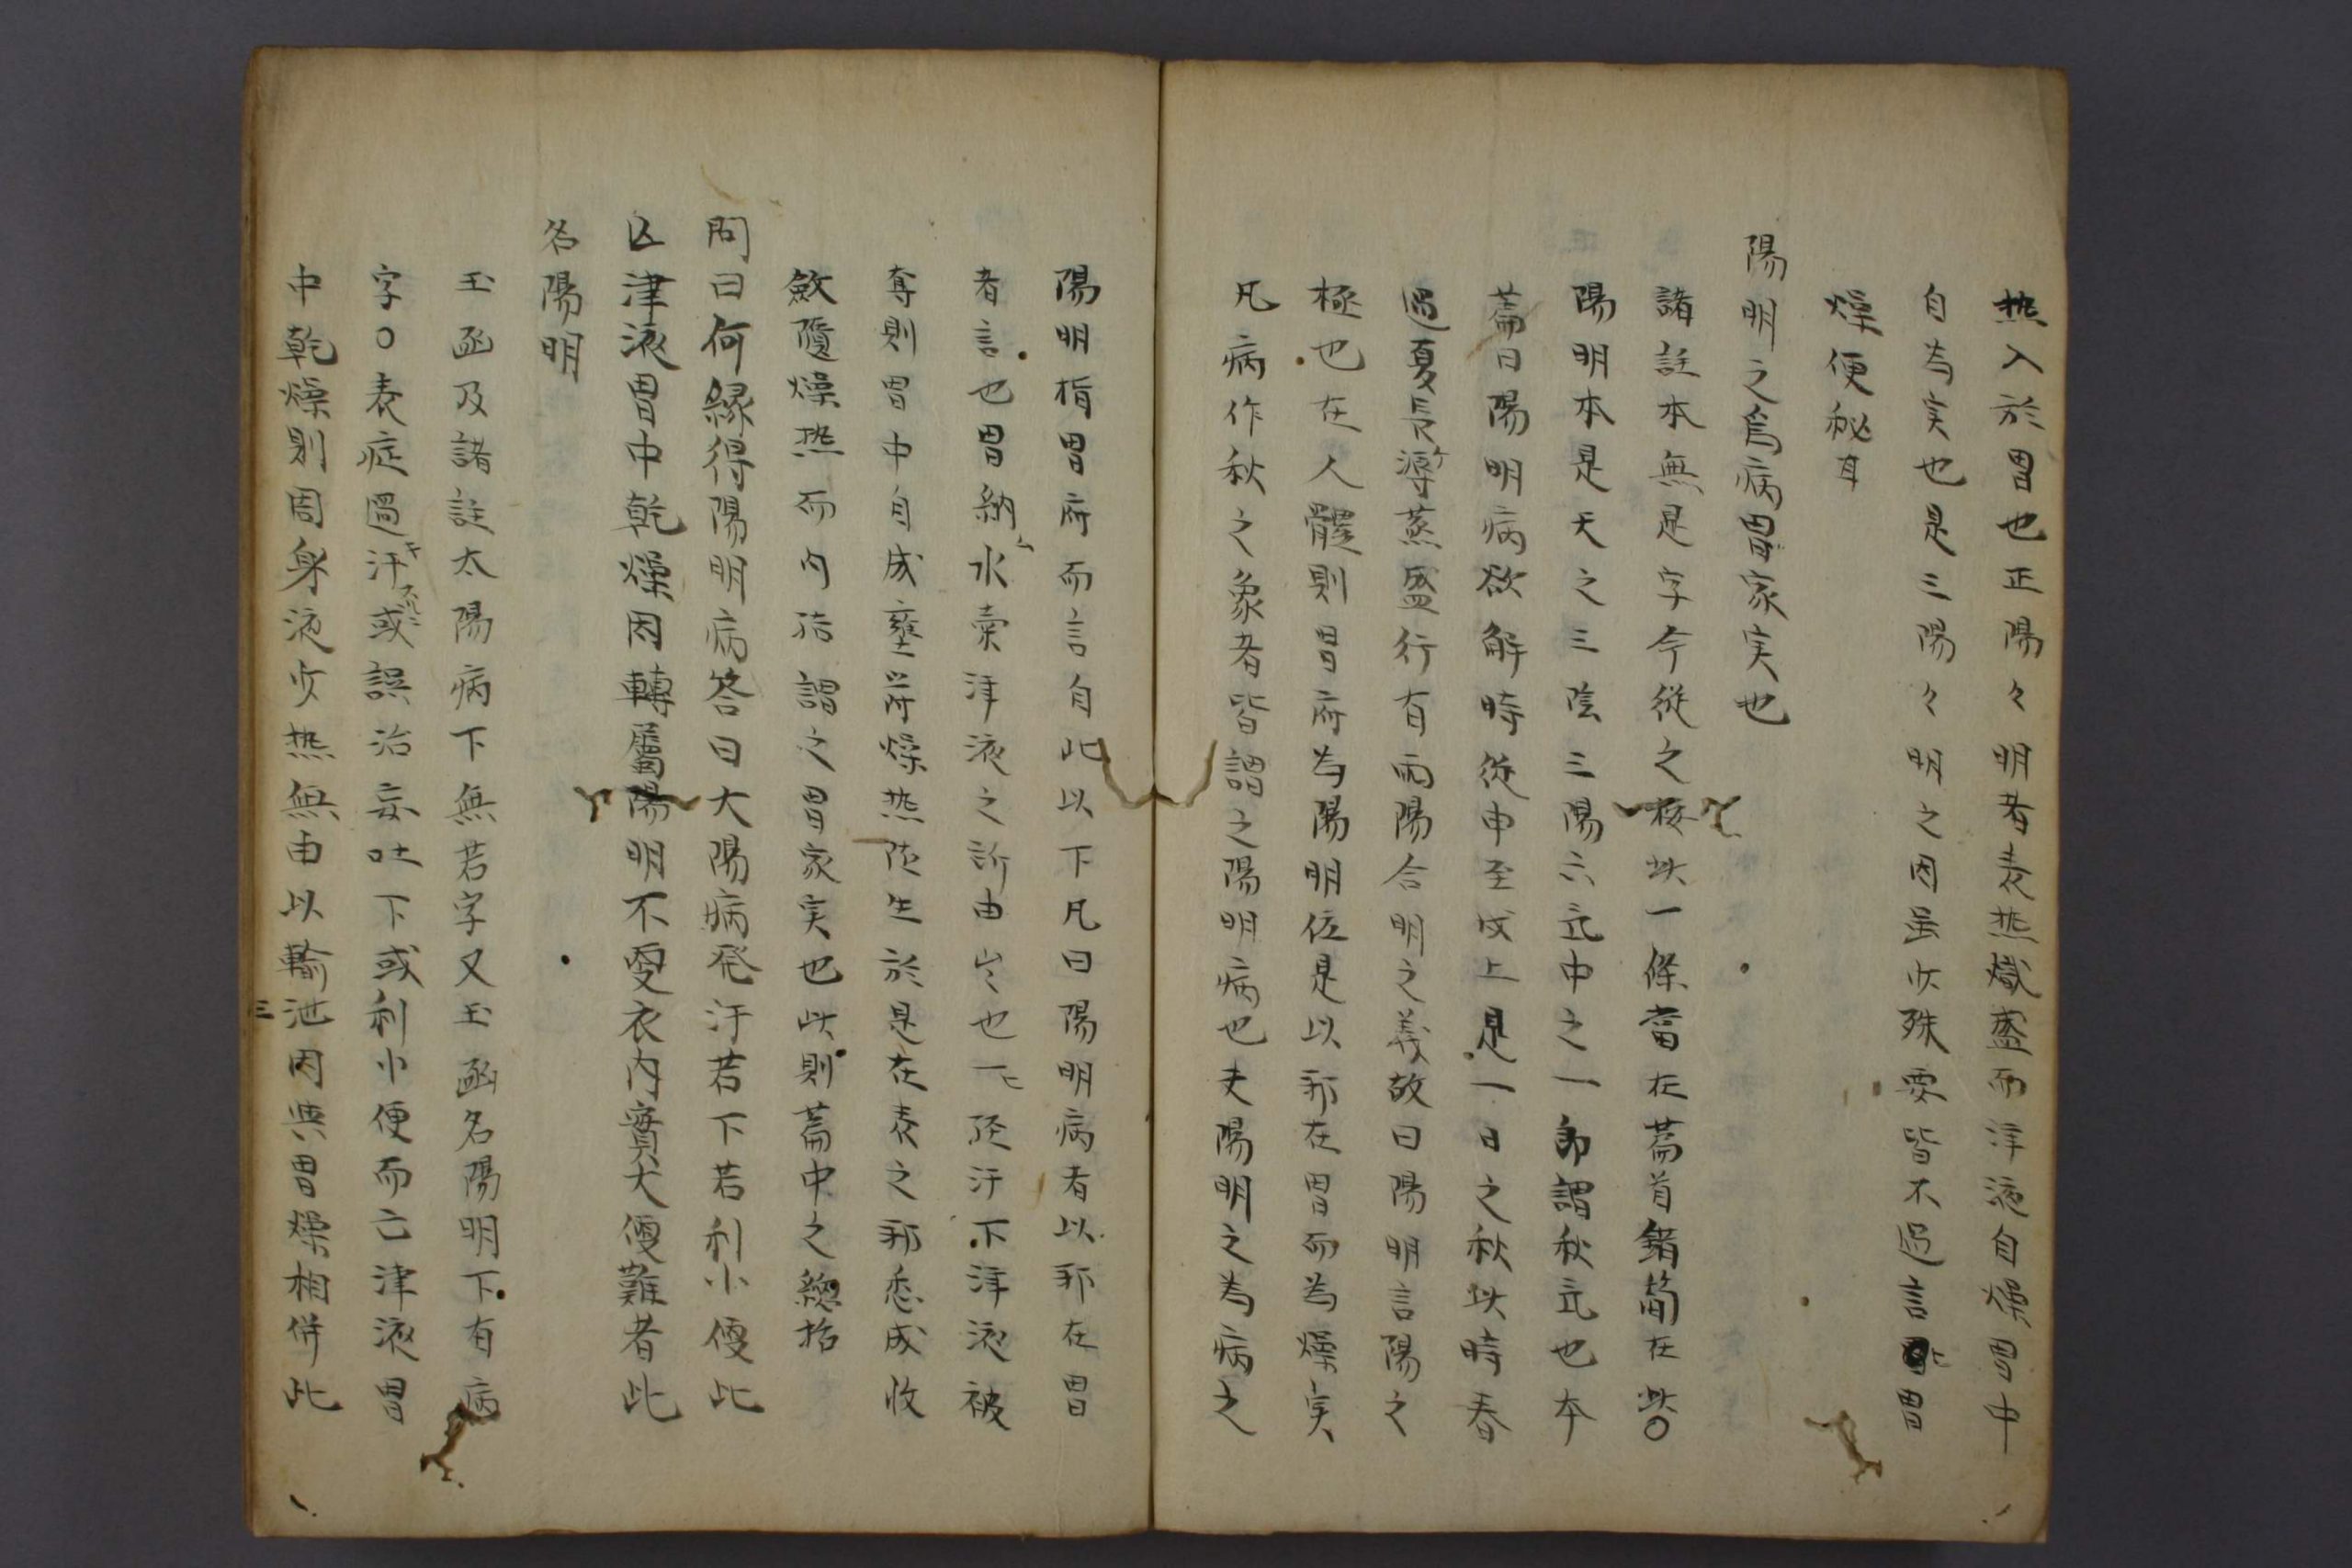 熱入於胃也正陽々明者表熱熾盛而津液自燥胃中
自為実也是三陽々明之因虽少殊要皆不過言胃
燥便秘耳
陽明之爲病胃家実也
諸註本無是字今從之按此一條當在篇首錯簡在此〇
陽明本是天之三陰三陽六氣中之一即謂秋氣也本
篇曰陽明病欲解時從申至戌上是一日之秋此時春
過夏長溽蒸盛行有両陽合明之義故曰陽明言陽之
極也在人體則胃府為陽明位是以邪在胃而為燥実
凡病作秋之象者皆謂之陽明病也夫陽明之為病之
陽明指胃府而言自此以下凡曰陽明病者以邪在胃
者言也胃納水索津液之所由出也一経汗下津液被
奪則胃中自成壅滞燥熱従生於是在表之邪悉成收
斂隨燥熱而内結謂之胃家実也此則篇中之総括
問曰何緣得陽明病答曰大陽病発汗若下若利小便此
亡津液胃中乾燥因轉屬陽明不更衣内實大便難者此
名陽明
玉函及諸註太陽病下無若字又玉函名陽明下有病
字〇表症過汗或誤治妄吐下或利小便而亡津液胃
中乾燥則周身液少熱無由以輸泄因與胃燥相併此
三